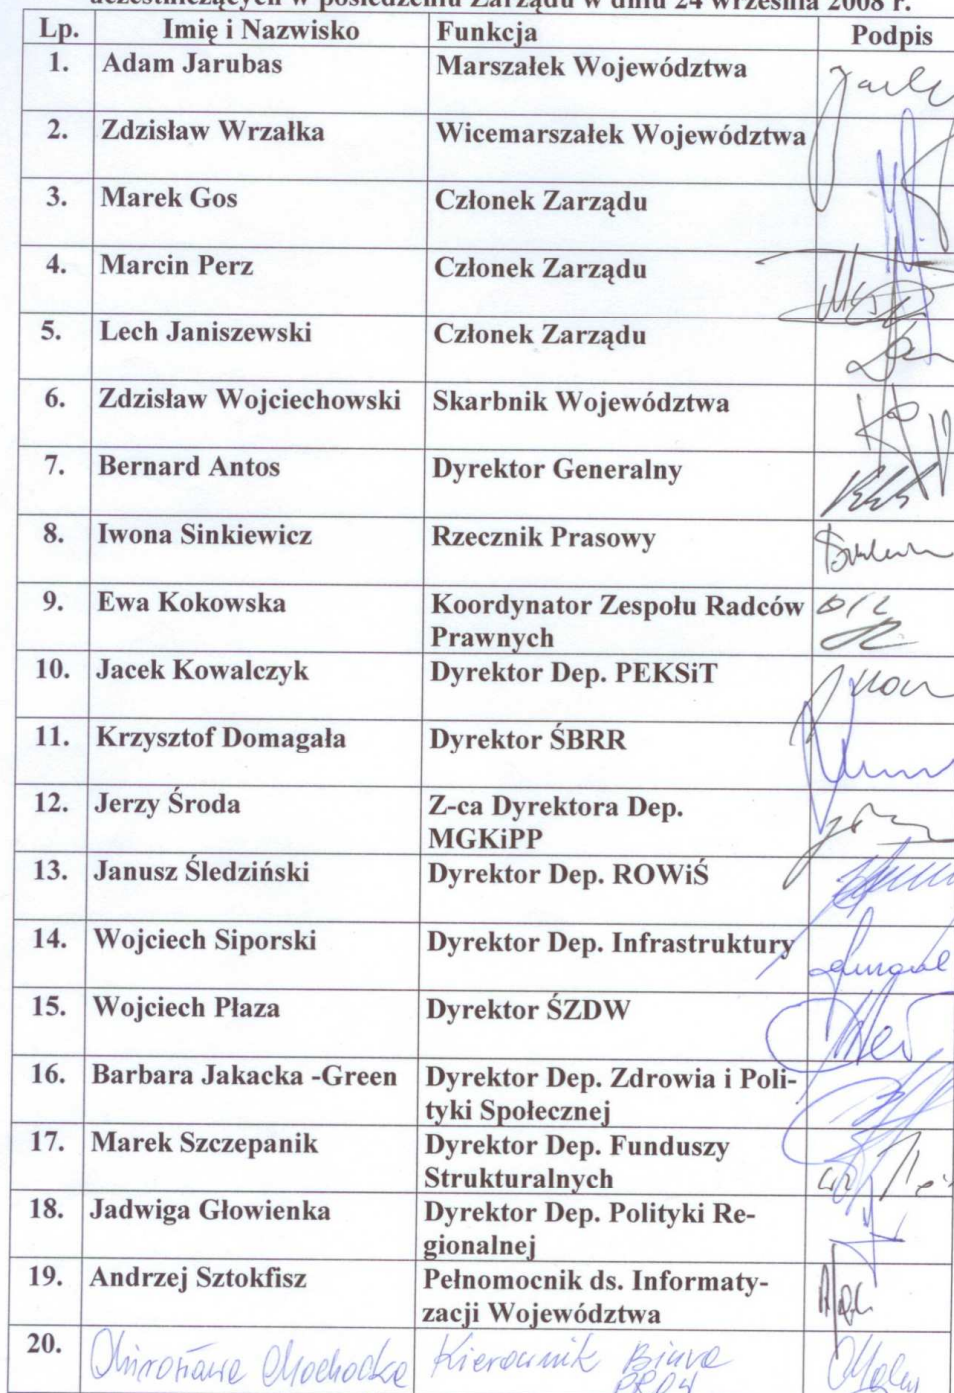 uczestniczących w posiedzeniu Zarządu w dniu 24 września 2008 r.
Lp. Imię i Nazwisko Funkcja Podpis
1. Adam Jarubas Marszałek Województwa
2. Zdzisław Wrzałka Wicemarszałek Województwa
3. Marek Gos Członek Zarządu
4. Marcin Perz Członek Zarządu
5. Lech Janiszewski Członek Zarządu
6. Zdzisław Wojciechowski Skarbnik Województwa
7. Bernard Antos Dyrektor Generalny
8. Iwona Sinkiewicz Rzecznik Prasowy
9. Ewa Kokowska Koordynator Zespołu Radców
Prawnych
10. Jacek Kowalczyk Dyrektor Dep. PEKSiT
11. Krzysztof Domagała Dyrektor ŚBRR
12. Jerzy Środa Z-ca Dyrektora Dep.
MGKiPP
13. Janusz Śledziński Dyrektor Dep. ROWiŚ
14. Wojciech Siporski Dyrektor Dep. Infrastruktury
15. Wojciech Płaza Dyrektor ŚZDW
16. Barbara Jakacka -Green Dyrektor Dep. Zdrowia i Poli-
tyki Społecznej
17. Marek Szczepanik Dyrektor Dep. Funduszy
Strukturalnych
18. Jadwiga Głowienka Dyrektor Dep. Polityki Re-
gionalnej
19. Andrzej Sztokfisz Pełnomocnik ds. Informaty-
zacji Województwa
20. Mirosława Mochocka Kierownik Biura
PROW